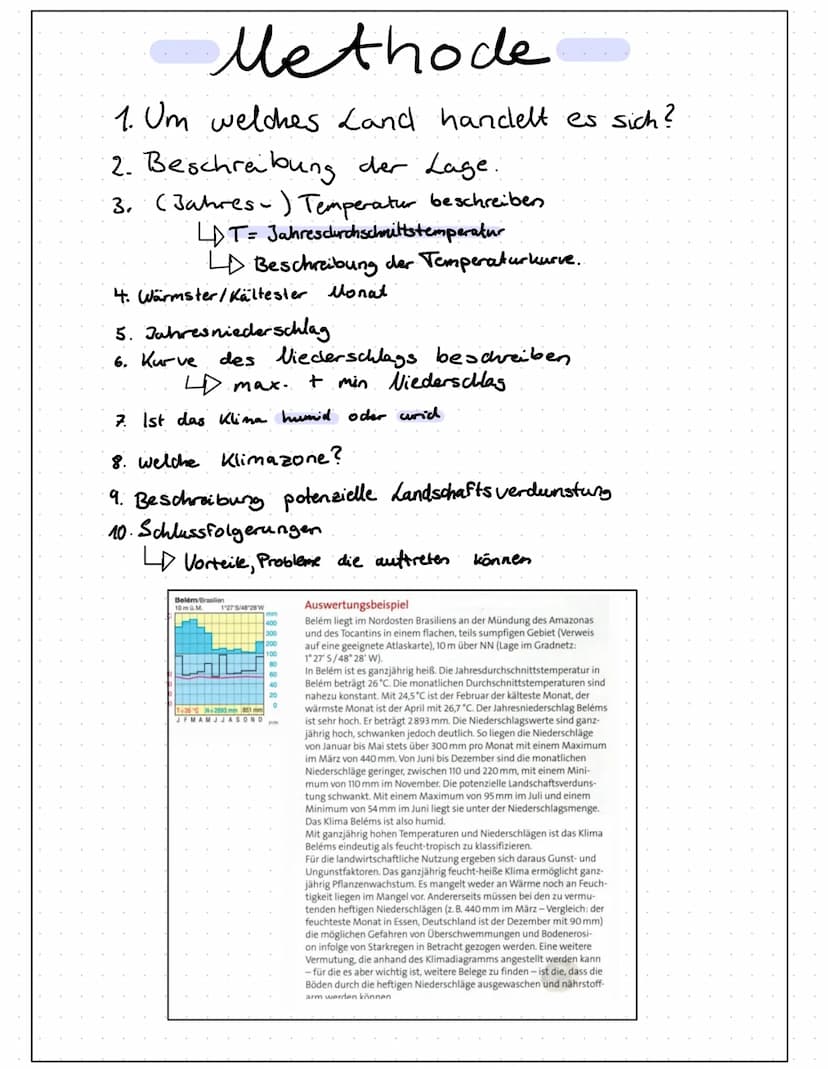 Methode
1. Um welches Land handelt es sich?
2. Beschreibung der Lage.
3. (Jahres-) Temperatur beschreiben
↳ T= Jahresdurchschnittstemperatur
↳ Beschreibung der Temperaturkurve.
4. Wärmster/Kältester Monat
5. Jahresniederschlag
6. Kurve des Niederschlags beschreiben
↳ max. + min Niederschlag
7. Ist das Klima humid oder arid
8. welche Klimazone?
9. Beschreibung potenzielle Landschaftsverdunstung
10. Schlussfolgerungen
↳ Vorteile, Probleme die auftreten können
Belém/Brasilien
10 m ü.M. 1°27'S/48°28'W
mm
400
300
200
100
80
60
40
20
0
T=26 °C N=2893 mm 851 mm
J F M A M J J A S O N D
Auswertungsbeispiel
Belém liegt im Nordosten Brasiliens an der Mündung des Amazonas
und des Tocantins in einem flachen, teils sumpfigen Gebiet (Verweis
auf eine geeignete Atlaskarte), 10 m über NN (Lage im Gradnetz:
1° 27' S/48° 28' W).
In Belém ist es ganzjährig heiß. Die Jahresdurchschnittstemperatur in
Belém beträgt 26 °C. Die monatlichen Durchschnittstemperaturen sind
nahezu konstant. Mit 24,5 °C ist der Februar der kälteste Monat, der
wärmste Monat ist der April mit 26,7 °C. Der Jahresniederschlag Beléms
ist sehr hoch. Er beträgt 2 893 mm. Die Niederschlagswerte sind ganz-
jährig hoch, schwanken jedoch deutlich. So liegen die Niederschläge
von Januar bis Mai stets über 300 mm pro Monat mit einem Maximum
im März von 440 mm. Von Juni bis Dezember sind die monatlichen
Niederschläge geringer, zwischen 110 und 220 mm, mit einem Mini-
mum von 110 mm im November. Die potenzielle Landschaftsverduns-
tung schwankt. Mit einem Maximum von 95 mm im Juli und einem
Minimum von 54 mm im Juni liegt sie unter der Niederschlagsmenge.
Das Klima Beléms ist also humid.
Mit ganzjährig hohen Temperaturen und Niederschlägen ist das Klima
Beléms eindeutig als feucht-tropisch zu klassifizieren.
Für die landwirtschaftliche Nutzung ergeben sich daraus Gunst- und
Ungunstfaktoren. Das ganzjährig feucht-heiße Klima ermöglicht ganz-
jährig Pflanzenwachstum. Es mangelt weder an Wärme noch an Feuch-
tigkeit liegen im Mangel vor. Andererseits müssen bei den zu vermu-
tenden heftigen Niederschlägen (z. B. 440 mm im März – Vergleich: der
feuchteste Monat in Essen, Deutschland ist der Dezember mit 90 mm)
die möglichen Gefahren von Überschwemmungen und Bodenerosi-
on infolge von Starkregen in Betracht gezogen werden. Eine weitere
Vermutung, die anhand des Klimadiagramms angestellt werden kann
– für die es aber wichtig ist, weitere Belege zu finden – ist die, dass die
Böden durch die heftigen Niederschläge ausgewaschen und nährstoff-
arm werden können